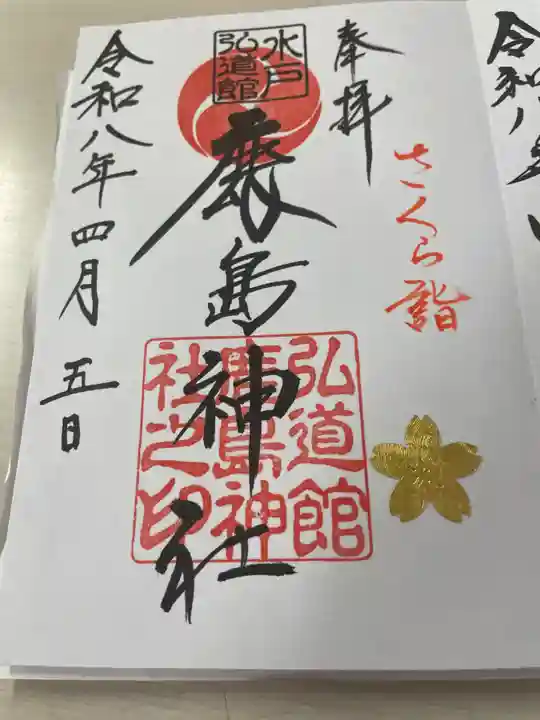 奉拝
さくら詣
水戸
弘道館
鹿島神社
弘道館
鹿島神
社之印
令和八年四月五日
令和八年